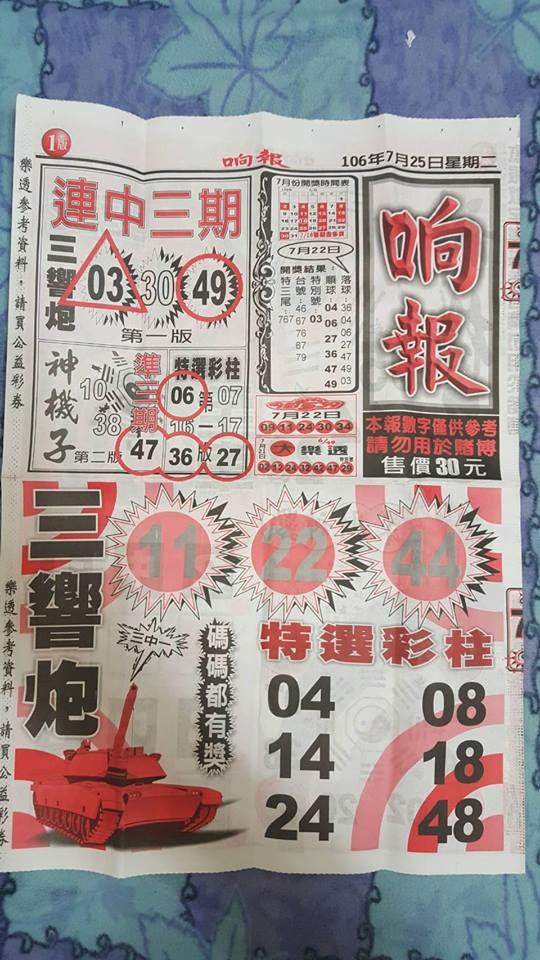 1版
响報
106年7月25日星期二
樂透參考資料，請買公益彩券
連中三期
三響炮
03 30 49
第一版
神機子
10
38
第二版
準三期
47
特選彩柱
06 第 07
16-17
36 版 27
7月份開獎時間表
7月22日
開獎結果：
特三尾： 767
台號 46 07 67 79
特別號 03
順球 04 06 27 36 47 49
落球 36 06 04 27 47 49 03
7月22日
09 11 24 30 34
大樂透
6/49
02 12 24 32 47 29
响報
本報數字僅供參考
請勿用於賭博
售價30元
三響炮
11 22 44
三中一
碼碼都有獎
特選彩柱
04 08
14 18
24 48
樂透參考資料，請買公益彩券